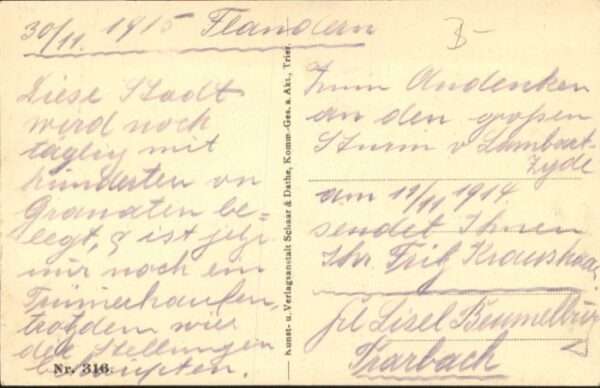 30/11. 1915 Flandern
Diese Stadt
wird noch
täglig mit
hunderten von
Granaten be=
legt, & ist jetzt
nur noch ein
Trümmerhaufen,
trotzdem wir
die Stellungen
behaupten.
Nr. 316
Kunst- u. Verlagsanstalt Schaar & Dathe, Komm.-Ges. a. Akt., Trier.
Zum Andenken
an den großen
Sturm v Lombart-
Zyde
am 11/11 1914
sendet Ihnen
Ihr Fritz
frl Lisel
Trarbach